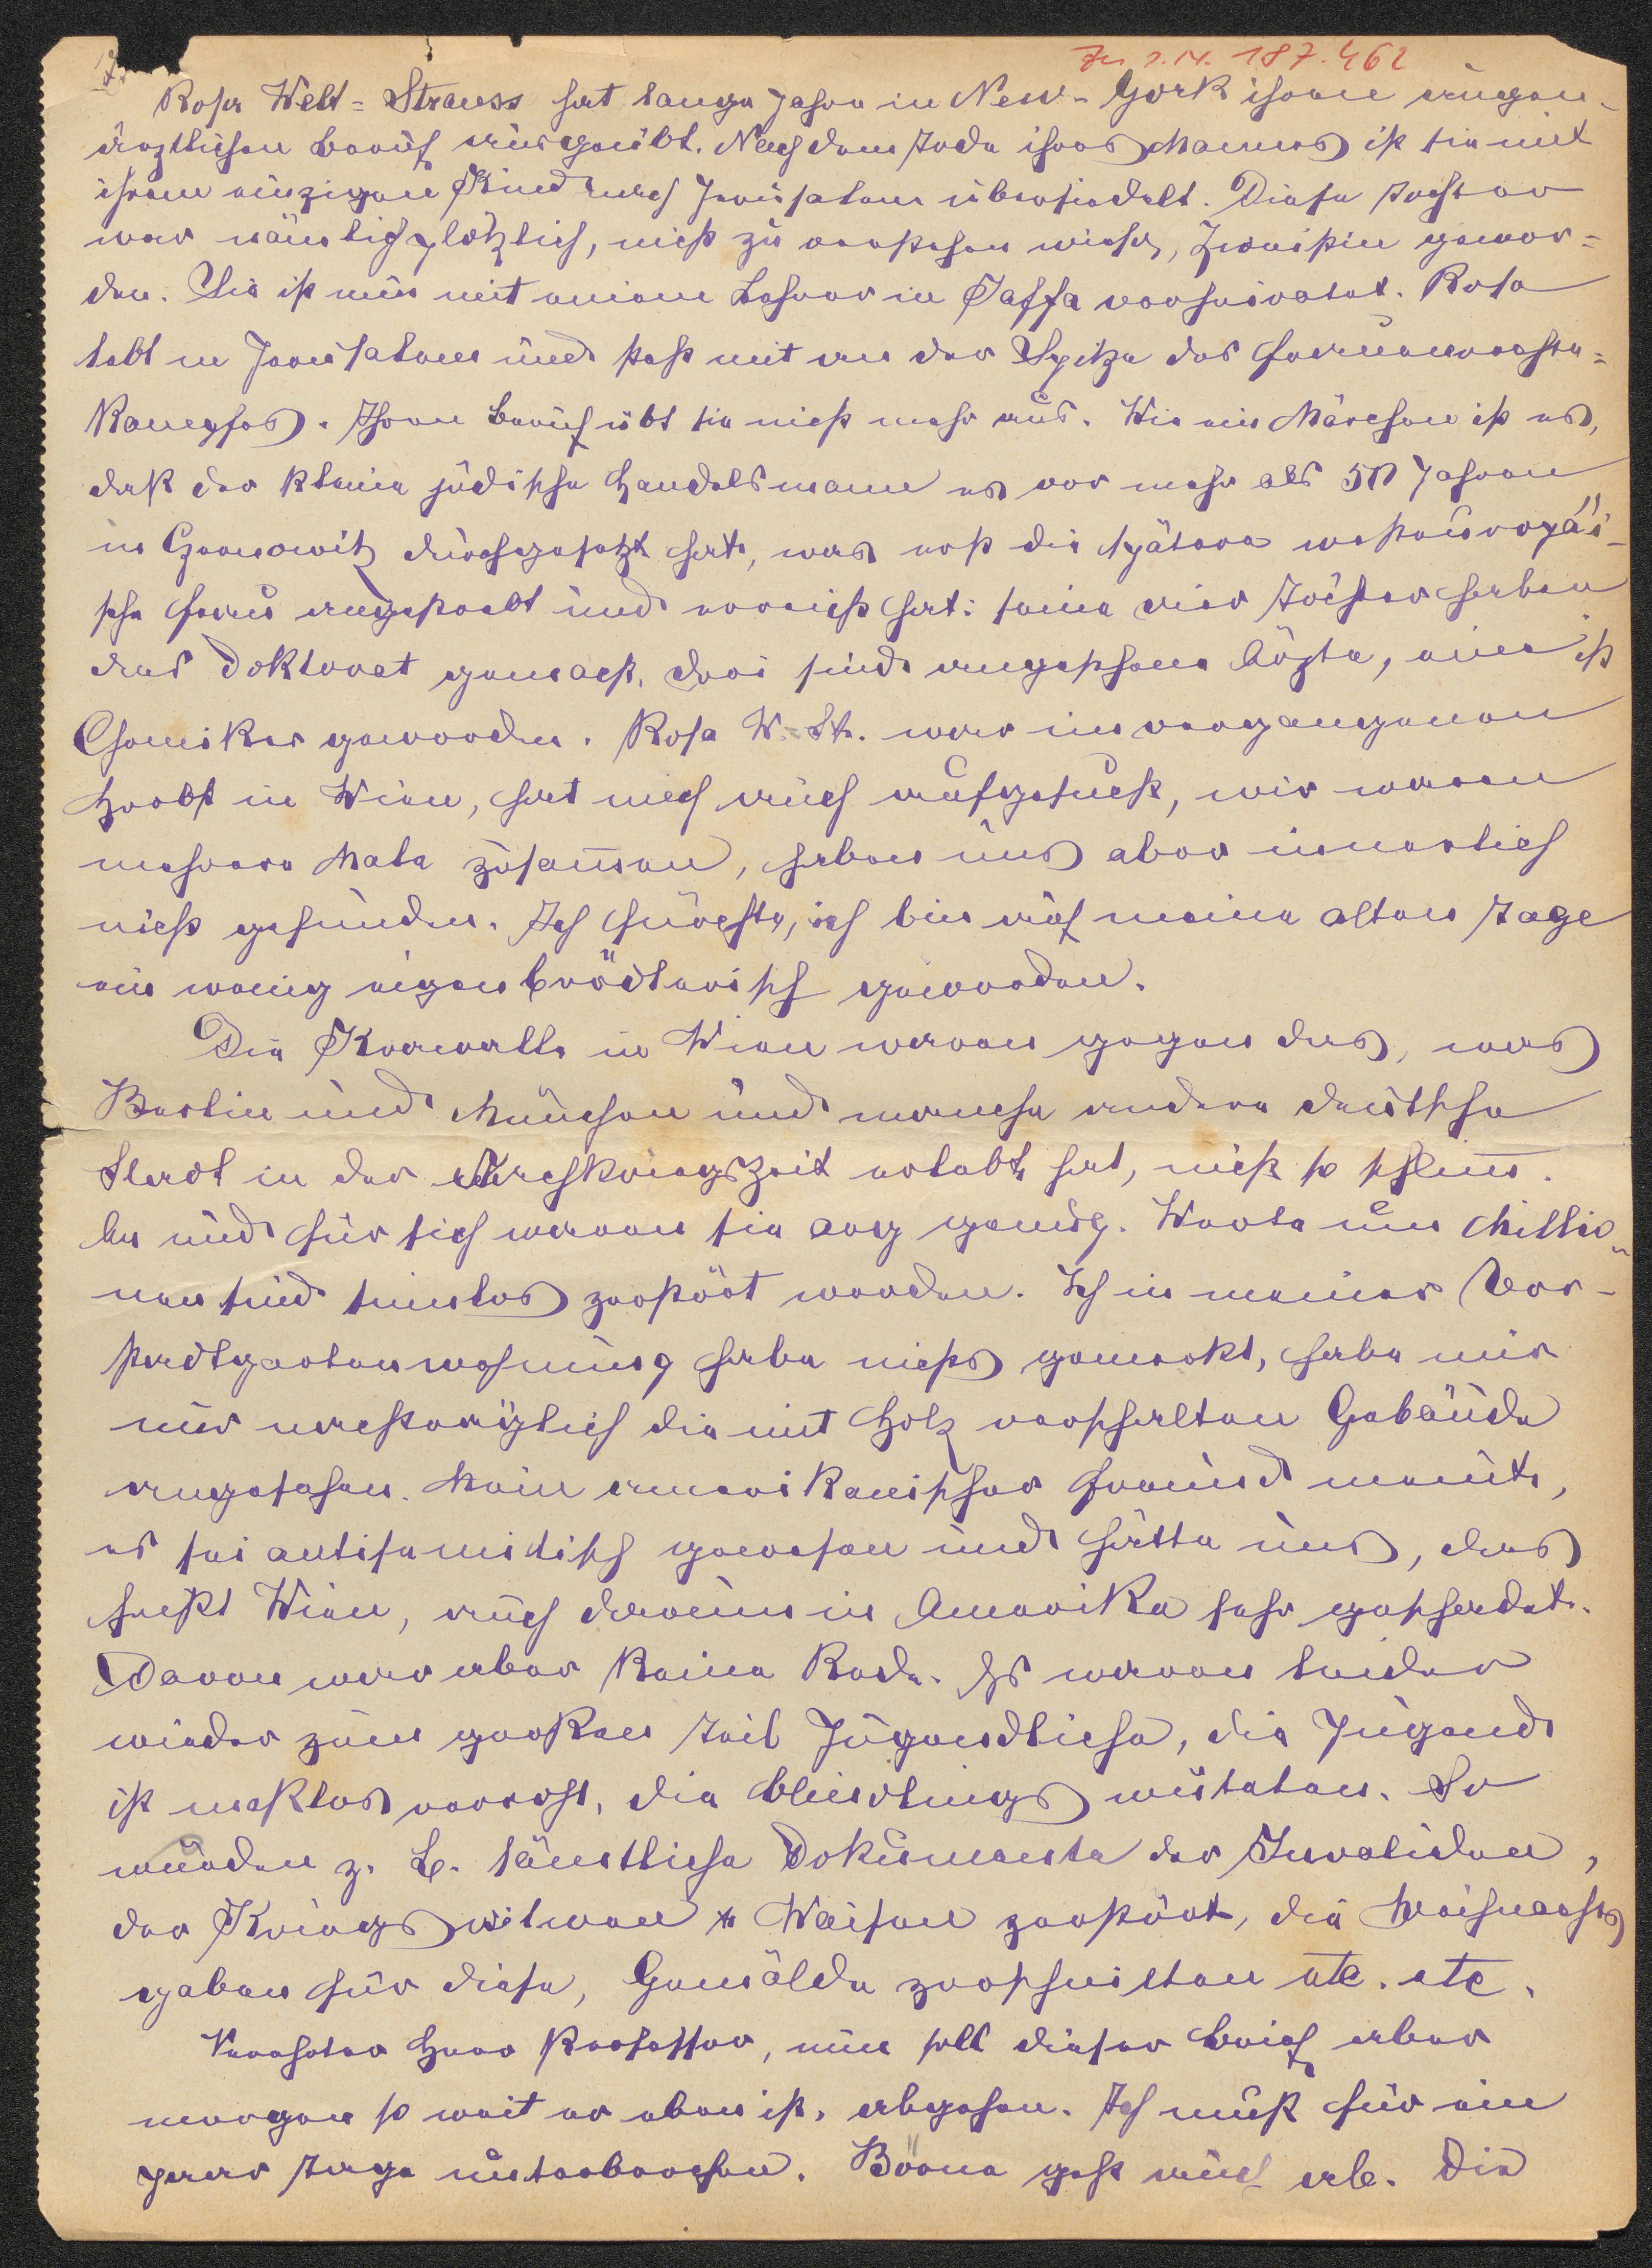 Zu I.N. 187.462
Rosa Welt-Strauss hat lange Jahre in New-York ihren augen-
ärztlichen Beruf ausgeübt. Nach dem Tode ihres Mannes ist sie mit
ihrem einzigen Kind nach Jerusalem übersiedelt. Diese Tochter
war nämlich plötzlich, nicht zu verstehen wieso, Zionistin gewor=
den. Sie ist nun mit einem Lehrer in Jaffa verheiratet. Rosa
lebt in Jerusalem und steht mit an der Spitze des Frauenrechts=
Kampfes. Ihren Beruf übt sie nicht mehr aus. Wie ein Märchen ist es,
daß der kleine jüdische Handelsmann es vor mehr als 50 Jahren
in Czernowitz durchgesetzt hat, was erst die spätere westeuropäi-
sche Frau angestrebt und erreicht hat: seine vier Töchter haben
das Doktorat gemacht, drei sind angesehene Ärzte, eine ist
Chemiker geworden. Rosa W.-St. war im vergangenen
Herbst in Wien, hat mich auch aufgesucht, wir waren
mehrere Male zusammen, haben uns aber innerlich
nicht gefunden. Ich fürchte, ich bin auf meine alten Tage
ein wenig eigenbrödlerisch geworden.
Die Krawalle in Wien waren gegen das, was
Berlin und München und manche andere deutsche
Stadt in der Nachkriegszeit erlebt hat, nicht so schlimm.
An und für sich waren sie arg genug. Werte um Millio-
nen sind sinnlos zerstört worden. Ich in meiner Vor-
stadtgartenwohnung habe nichts gemerkt, habe mir
nur nachträglich die mit Holz verschalten Gebäude
angesehen. Mein amerikanischer Freund meint,
es sei antisemitisch gewesen und hätte uns, das
heißt Wien, auch darum in Amerika sehr geschadet.
Davon war aber keine Rede. Es waren leider
wieder zum großen Teil Jugendliche, die Jugend
ist maßlos verroht, die blindlings wüteten. So
wurden z. B. sämtliche Dokumente der Invaliden,
der Kriegswitwen u Waisen zerstört, die Weihnachts
gaben für diese, Gemälde zerschnitten etc. etc.
Verehrter Herr Professor, nun soll dieser Brief aber
morgen so weit er eben ist, abgehen. Ich muß für ein
paar Tage unterbrechen. Börne geht auch ab. Die